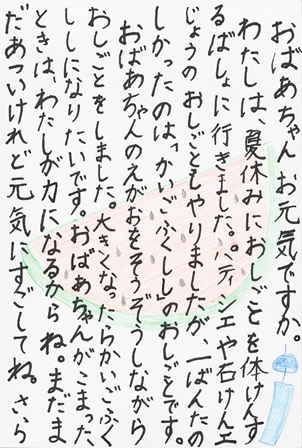 おばあちゃん お元気ですか。
わたしは、夏休みにおしごとを体けんす
るばしょに行きました。パティシエや石けんこ
じょうのおしごともやりましたが、一ばんたの
しかったのは「かいごふくしし」のおしごとです。
おばあちゃんのえがおをそうぞうしながら
おしごとをしました。大きくなったらかいごふく
ししになりたいです。おばあちゃんがこまった
ときは、わたしが力になるからね。まだま
だあついけれど元気にすごしてね。さくら